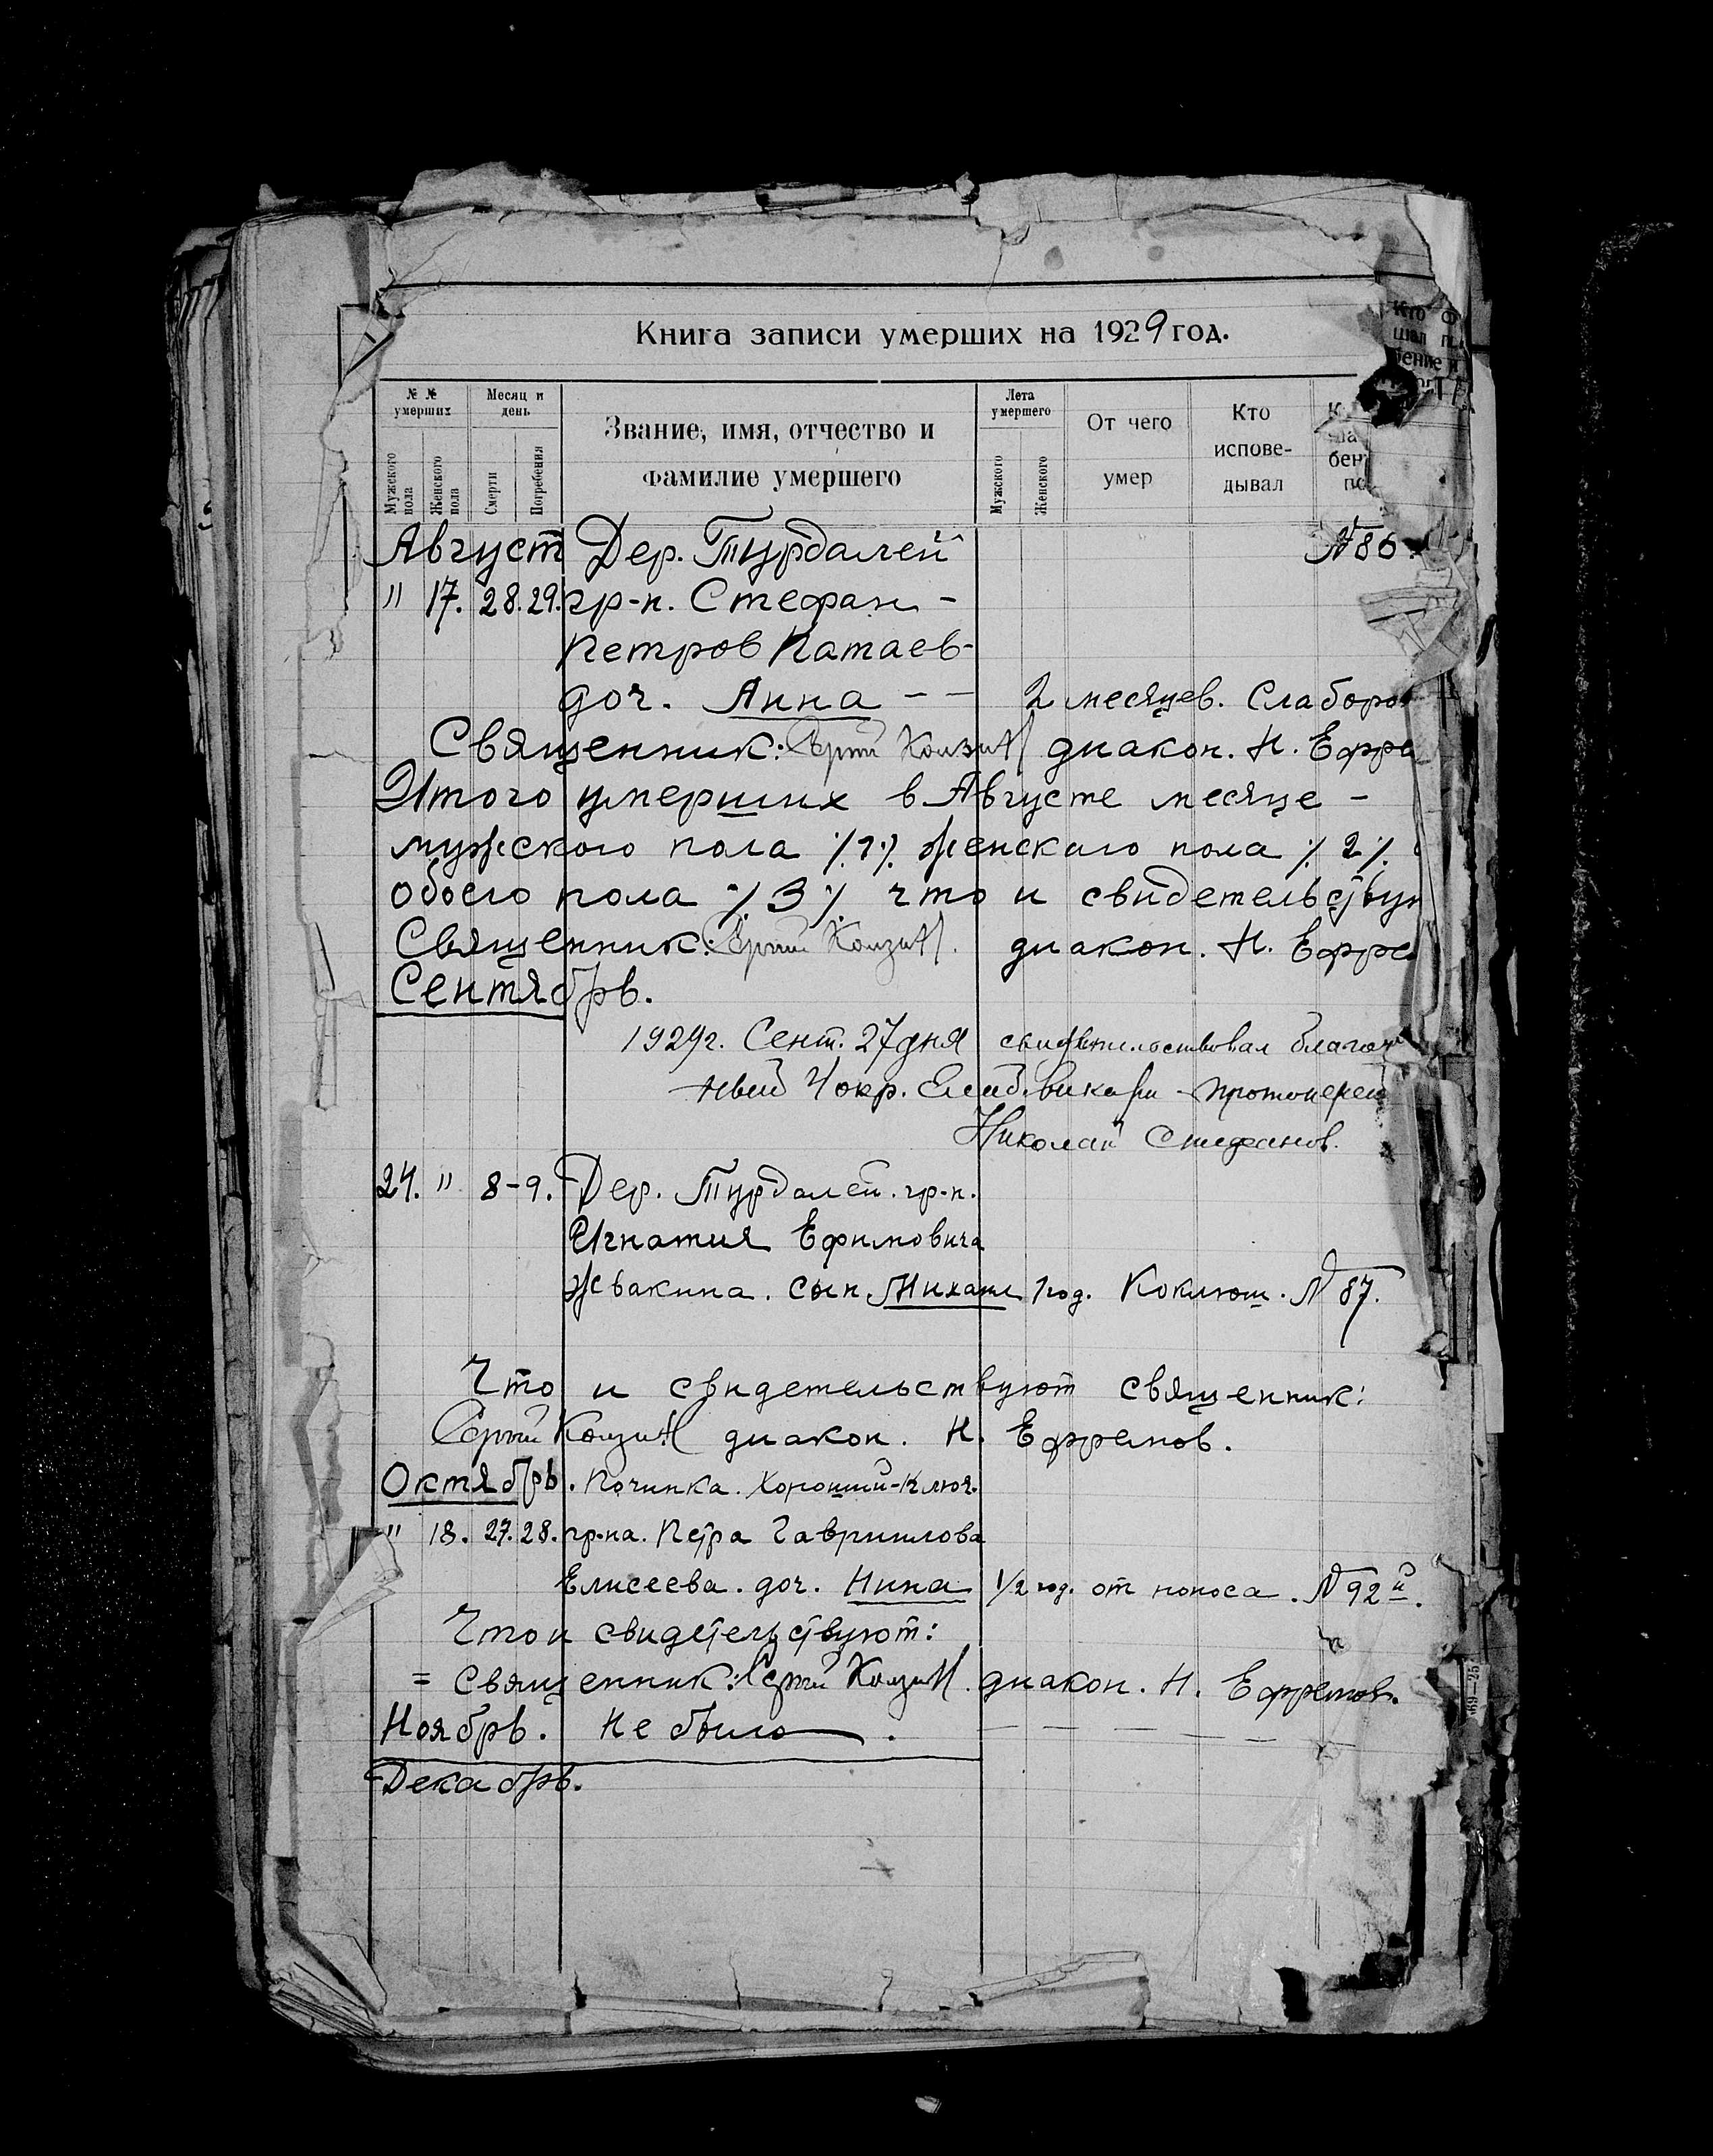 Книга записи умерших на 1929 год.
№ № умерших
Месяц и день
Звание, имя, отчество и фамилие умершего
Лета умершего
От чего умер
Кто исповедывал
Мужского пола
Женского пола
Смерти
Погребения
Мужского
Женского
Август Дер. Турдалей №86.
" 17. 28.29. гр-н. Стефан -
Петров Патаев-
доч. Анна - - 2 месяцев. Слаборо
Священник: диакон. Н. Ефре
Итого умерших в Августе месяце -
мужского пола ٪1٪ женскаго пола ٪2٪.
обоего пола ٪3٪ что и свидетельствую
Священник: диакон. Н. Ефре
Сентябрь.
1929г. Сент. 27 дня свидетельствовал благочин
ный 4 окр. Елаб. викари - протоиерей
Николай Стефанов.
24. " 8-9. Дер. Турдалей. гр-н.
Игнатия Ефимовича
Жвакина. сын Михаил 1 год. Коклюш. № 87.
Что и свидетельствуют священник:
диакон. Н. Ефремов.
Октябрь. Починка. Хороший-Ключ.
" 18. 27.28. гр-на. Петра Гаврилова
Елисеева. доч. Нина 1/2 год. от поноса. № 92й.
Что и свидетельствуют:
= Священник: диакон. Н. Ефремов.
Ноябрь. Не было.
Декабрь.